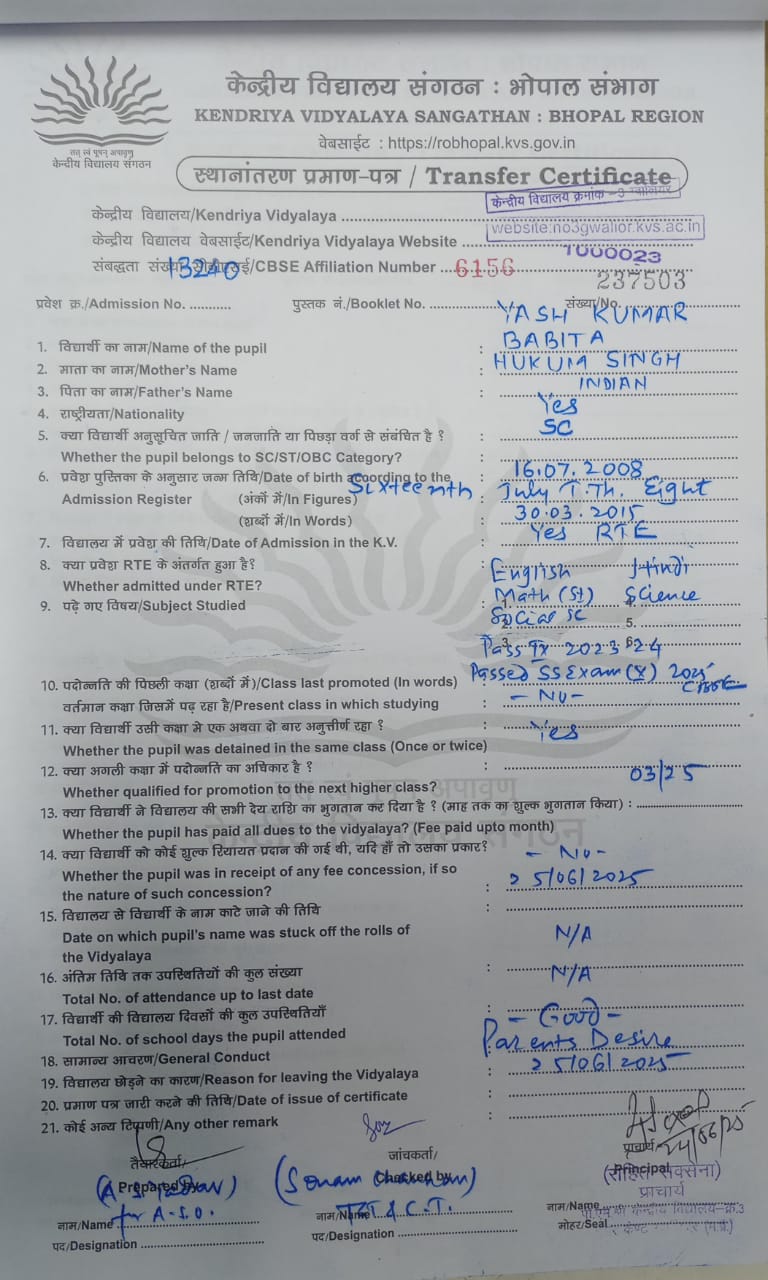 तत् त्वं पूषन् अपावृणु
केन्द्रीय विद्यालय संगठन
केन्द्रीय विद्यालय संगठन : भोपाल संभाग
KENDRIYA VIDYALAYA SANGATHAN : BHOPAL REGION
वेबसाईट : https://robhopal.kvs.gov.in
स्थानांतरण प्रमाण-पत्र / Transfer Certificate
केन्द्रीय विद्यालय क्रमांक -3 ग्वालियर
केन्द्रीय विद्यालय/Kendriya Vidyalaya
website:no3gwalior.kvs.ac.in
केन्द्रीय विद्यालय वेबसाईट/Kendriya Vidyalaya Website
1000023
संबद्धता संख्या सीबीएसई/CBSE Affiliation Number
13240 6156 237503
प्रवेश क्र./Admission No. ........... पुस्तक नं./Booklet No. संख्या/No.
YASH KUMAR
1. विद्यार्थी का नाम/Name of the pupil : BABITA
2. माता का नाम/Mother's Name : HUKUM SINGH
3. पिता का नाम/Father's Name : INDIAN
4. राष्ट्रीयता/Nationality : Yes
5. क्या विद्यार्थी अनुसूचित जाति / जनजाति या पिछड़ा वर्ग से संबंधित है ? : SC
Whether the pupil belongs to SC/ST/OBC Category? :
6. प्रवेश पुस्तिका के अनुसार जन्म तिथि/Date of birth acoording to the : 16.07.2008
Admission Register (अंकों में/In Figures) : Sixteenth July T.Th. Eight
(शब्दों में/In Words) : 30.03.2015
7. विद्यालय में प्रवेश की तिथि/Date of Admission in the K.V. : Yes RTE
8. क्या प्रवेश RTE के अंतर्गत हुआ है?
English Hindi
Whether admitted under RTE?
9. पढ़े गए विषय/Subject Studied : 1. Math (St) 4. Science
Social SC 5.
3. 6.
Pass IX 2023-24
10. पदोन्नति की पिछली कक्षा (शब्दों में)/Class last promoted (In words) : Passed SS Exam (X) 2025 CBSE
वर्तमान कक्षा जिसमें पढ़ रहा है/Present class in which studying : - No -
11. क्या विद्यार्थी उसी कक्षा मे एक अथवा दो बार अनुत्तीर्ण रहा ? : Yes
Whether the pupil was detained in the same class (Once or twice)
12. क्या अगली कक्षा में पदोन्नति का अधिकार है ? : 03/25
Whether qualified for promotion to the next higher class?
13. क्या विद्यार्थी ने विद्यालय की सभी देय राशि का भुगतान कर दिया है ? (माह तक का शुल्क भुगतान किया) :
Whether the pupil has paid all dues to the vidyalaya? (Fee paid upto month)
14. क्या विद्यार्थी को कोई शुल्क रियायत प्रदान की गई थी, यदि हाँ तो उसका प्रकार?
- No -
Whether the pupil was in receipt of any fee concession, if so
the nature of such concession? : 25/06/2025
15. विद्यालय से विद्यार्थी के नाम काटे जाने की तिथि :
Date on which pupil's name was stuck off the rolls of
the Vidyalaya
N/A
16. अंतिम तिथि तक उपस्थितियों की कुल संख्या :
Total No. of attendance up to last date
N/A
17. विद्यार्थी की विद्यालय दिवसों की कुल उपस्थितियाँ :
Total No. of school days the pupil attended
- Good -
18. सामान्य आचरण/General Conduct : Parents Desire
19. विद्यालय छोड़ने का कारण/Reason for leaving the Vidyalaya : 25/06/2025
20. प्रमाण पत्र जारी करने की तिथि/Date of issue of certificate :
21. कोई अन्य टिप्पणी/Any other remark :
24/06/25
तैयारकर्ता/ जांचकर्ता/ प्राचार्य/
Prepared By Checked by Principal
(A. S. ) (Sonam ) (रोहित सक्सेना)
प्राचार्य
for A.S.O. TGT & C.T.
नाम/Name नाम/Name नाम/Name
केन्द्रीय विद्यालय-क्र.3
पद/Designation पद/Designation मोहर/Seal